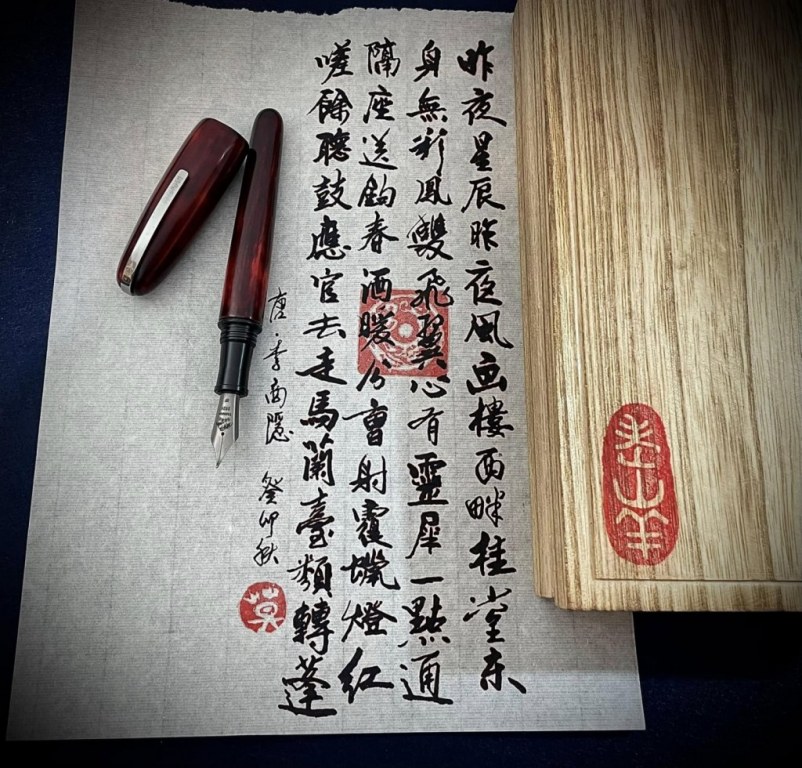 昨夜星辰昨夜風画樓西畔桂堂东
身無彩鳳雙飛翼心有靈犀一點通
隔座送鈎春酒暖分曹射覆蠟燈红
嗟餘聽鼓應官去走馬蘭臺類轉蓬
唐·李商隱 癸卯秋
莫